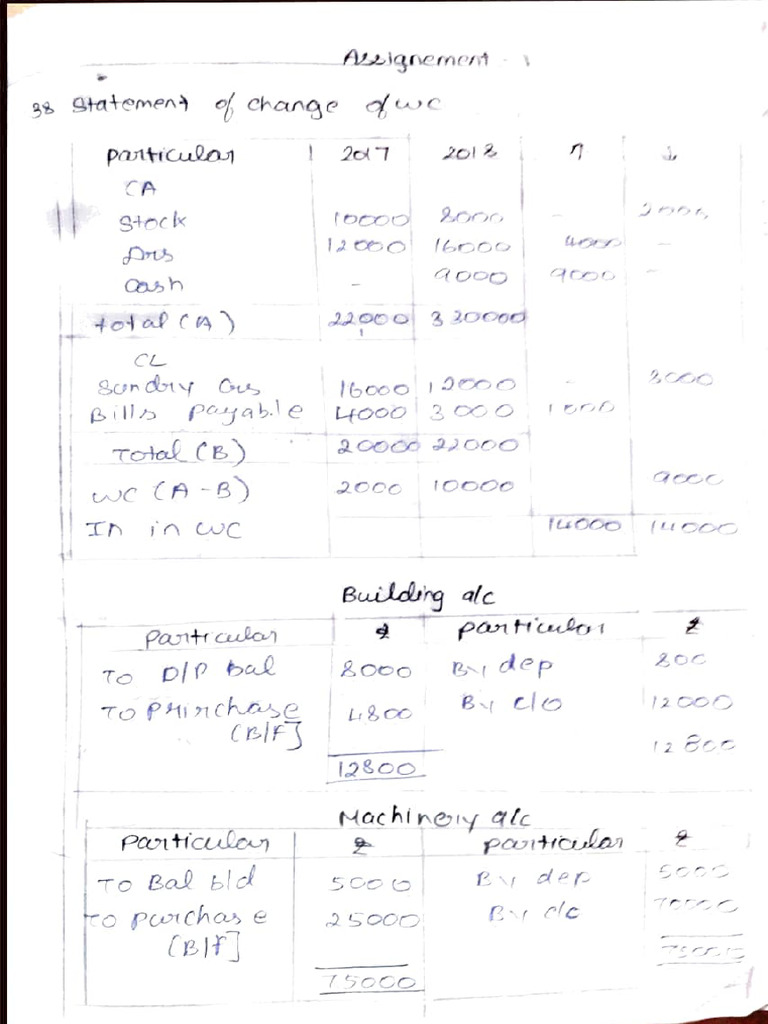 Assignement
38 Statement of change of WC
Particular 2017 2018 ↑ ↓
CA
Stock 10000 8000 - 2000
Drs 12000 16000 4000 -
Cash - 9000 9000 -
total (A) 22000 330000
CL
Sundry Crs 16000 12000 - 3000
Bills payable 4000 3000 1000
Total (B) 20000 22000
WC (A-B) 2000 10000 9000
In in WC 14000 14000
Building a/c
Particular ₹ particular ₹
To D/P bal 8000 By dep 800
To Prirchase 4800 By c/o 12000
(B/f] 12800
12800
Machinery a/c
Particular ₹ particular ₹
To Bal b/d 5000 By dep 5000
To purchase 25000 By c/c 70000
(B/f] 75000
75000